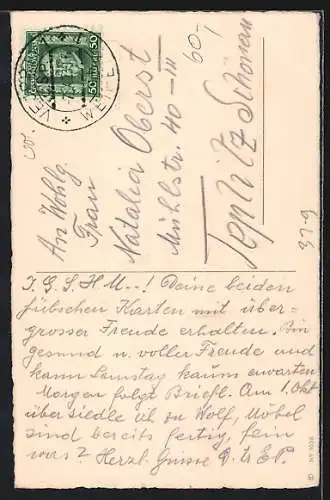 50 50
W.
An Wohlg.
Frau
Natalia Oberst
Mühlstr. 40-III
Teplitz Schönau
60,-
37-9
I. G. S. H. M..-! Deine beiden
hübschen Karten mit über-
grosser Freude erhalten. Bin
gesund u. voller Freude und
kann Samstag kaum erwarten
Morgen folgt Briefl. Am 1. Okt
übersiedle ich zu Wolf, Möbel
sind bereits fertig, fein
was? Herzl. Grüsse